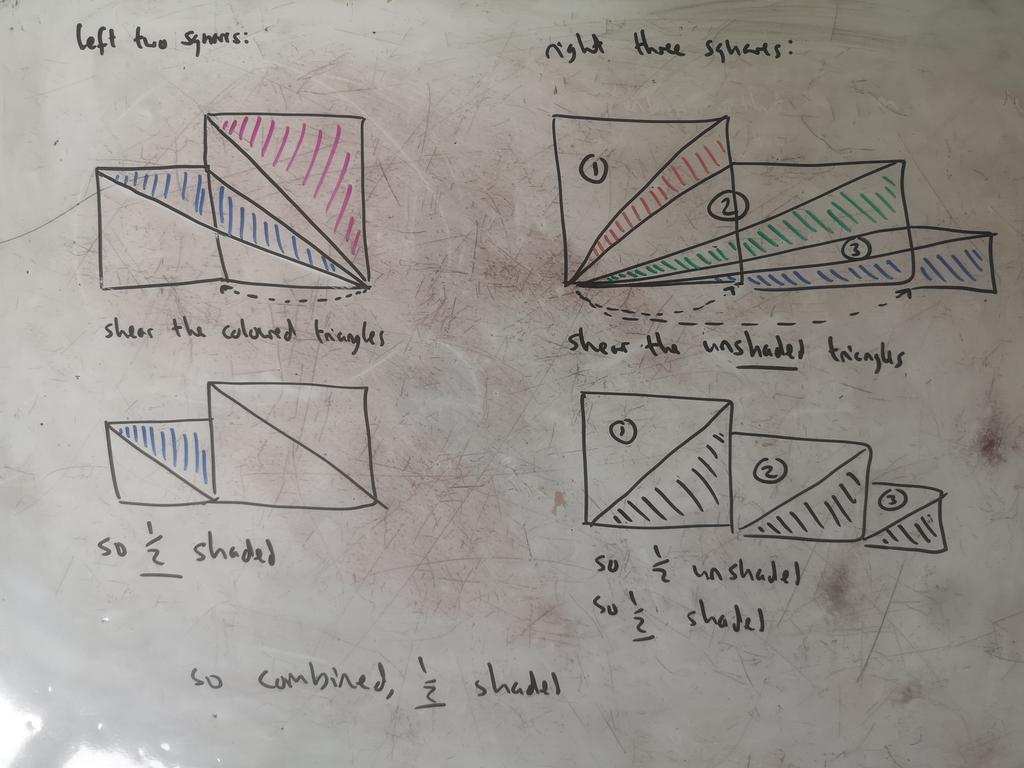 left two squares:
shear the coloured triangles
so 1/2 shaded
right three squares:
1
2
3
shear the unshaded triangles
1
2
3
so 1/2 unshaded
so 1/2 shaded
so combined, 1/2 shaded